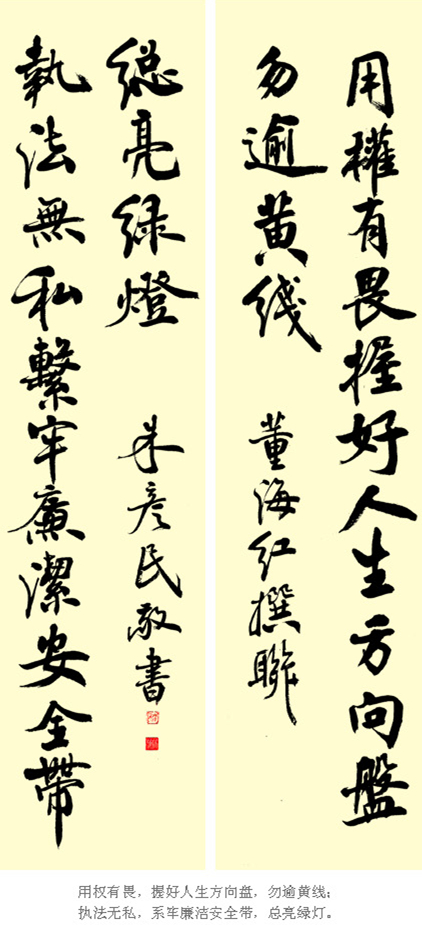 用權有畏握好人生方向盤
勿逾黄线
董海红撰聯
執法無私繫牢廉潔安全帶
総亮绿燈
朱彦民敬書
用权有畏，握好人生方向盘，勿逾黄线；
执法无私，系牢廉洁安全带，总亮绿灯。